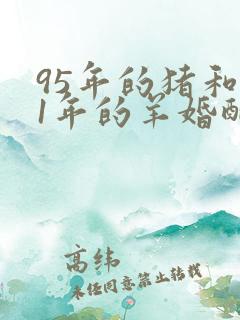 95年的猪和
1年的羊婚配
高纬
未经同意禁止转载